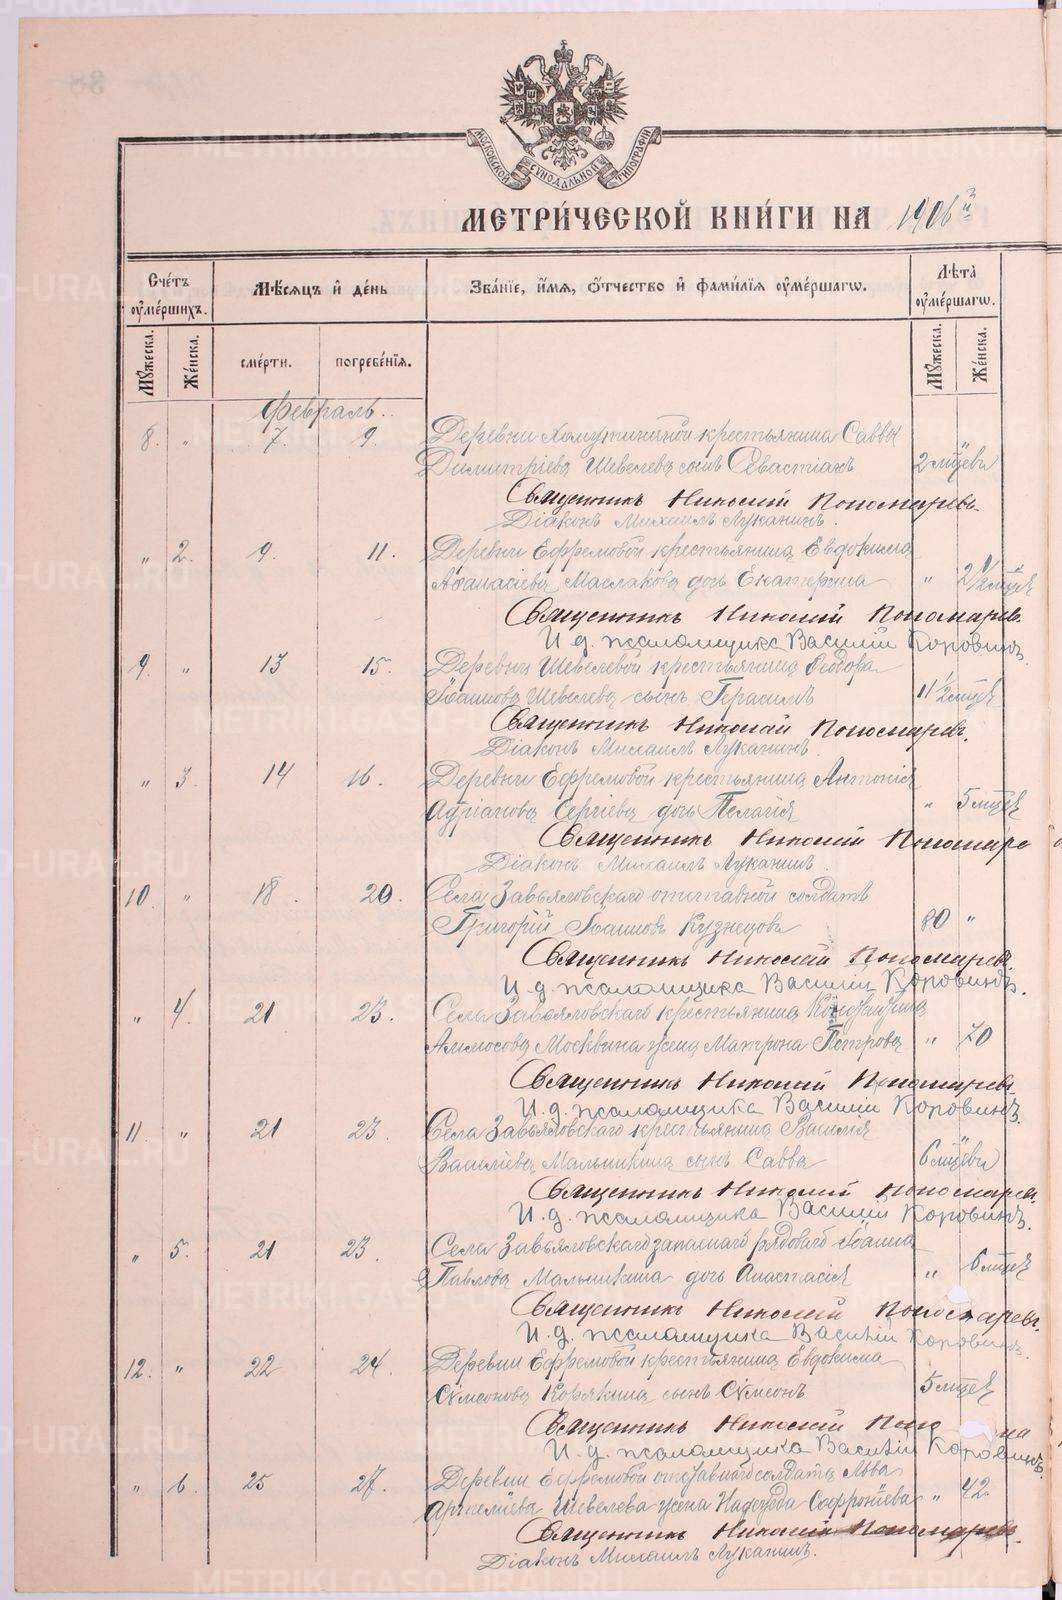 МОСКОВСКОЙ СѴНОДАЛЬНОЙ ТИПОГРАФІИ
МЕТРИ́ЧЕСКОЙ КНИ́ГИ НА 1906 й
Сче́тъ ᲂумершихъ.
Мѣ́сяцъ и҆ де́нь
Зва́нїе, и҆́мя, ѻ҆́тчество и҆ фами́лїя ᲂу҆ме́ршагѡ.
Лѣта̀ ᲂу҆ме́ршагѡ.
Мꙋ́жеска.
Же́нска.
сме́рти.
погребе́нїя.
Мꙋ́жеска.
Же́нска.
Февраль.
8. " 7. 9. Деревни Хомутининой крестьянина Саввы
Димитріева Шевелева сынъ Севастіанъ 2 мцевъ "
Священникъ Николай Пономаревъ.
Діаконъ Михаилъ Луканинъ.
" 2. 9. 11. Деревни Ефремовой крестьянина Евдокима
Аѳанасіева Маслакова дочь Екатерина " 2 1/2 мцевъ
Священникъ Николай Пономаревъ.
И. д. псаломщика Василій Коровинъ.
9. " 13 15. Деревни Шевелевой крестьянина Ѳеодора
Іоаннова Шевелева сынъ Герасимъ 11 1/2 мцевъ
Священникъ Николай Пономаревъ.
Діаконъ Михаилъ Луканинъ.
" 3. 14 16. Деревни Ефремовой крестьянина Антонія
Адріанова Сергіева дочь Пелагія " 5 мцевъ
Священникъ Николай Пономаре
Діаконъ Михаилъ Луканинъ.
10. " 18. 20. Села Завьяловскаго отставной солдатъ
Григорій Іоанновъ Кузнецовъ 80 "
Священникъ Николай Пономаревъ.
И. д. псаломщика Василій Коровинъ.
" 4. 21 23. Села Завьяловскаго крестьянина
Аммосова Москвина жена Матрона Петрова " 70
Священникъ Николай Пономаревъ.
И. д. псаломщика Василій Коровинъ.
11. " 21 23. Села Завьяловскаго крестьянина Василія
Василіева Мальникина сынъ Савва 6 мцевъ "
Священникъ Николай Пономарев.
И. д. псаломщика Василій Коровинъ.
" 5. 21 23. Села Завьяловскаго запаснаго рядоваго Іоанна
Павлова Мальникина дочь Анастасія " 6 мцевъ
Священникъ Николай Пономаревъ.
И. д. псаломщика Василій Коровинъ.
12. " 22 24. Деревни Ефремовой крестьянина Евдокима
Сѵмеонова Корякина сынъ Сѵмеонъ 5 мцевъ
Священникъ Николай Поно на
И. д. псаломщика Василій Коровинъ.
" 6. 25 27. Деревни Ефремовой отставнаго солдата Льва
Шевелева жена Надежда Софроніева " 42
Священникъ Николай Пономаревъ.
Діаконъ Михаилъ Луканинъ.
METRIKI.GASO-URAL.RU